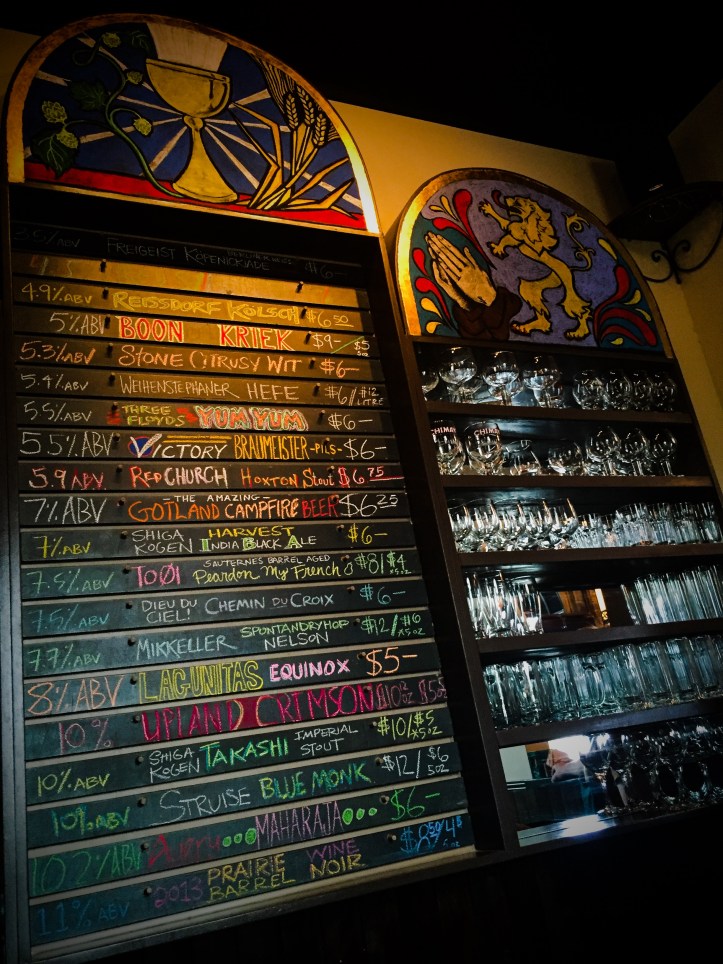 3.5% ABV FREIGEIST KÖPENICKIADE $6-
4.9% ABV REISSDORF KOLSCH $6.50
5% ABV BOON KRIEK $9-/$5 5oz
5.3% ABV STONE CITRUSY WIT $6-
5.4% ABV WEIHENSTEPHANER HEFE $6/$12 LITRE
5.5% ABV THREE FLOYDS YUM YUM $6-
5.5% ABV VICTORY BRAUMEISTER -PILS- $6-
5.9 ABV RED CHURCH HOXTON STOUT $6.75
7% ABV -THE AMAZING- GOTLAND CAMPFIRE BEER $6.25
7% ABV SHIGA KOGEN HARVEST INDIA BLACK ALE $6-
7.5% ABV TO Øl SAUTERNES BARREL AGED Peardon My French $8/$4 5oz
7.5% ABV DIEU DU CIEL! CHEMIN DU CROIX $6-
7.7% ABV MIKKELLER SPONTANDRYHOP NELSON $12/$6 5oz
8% ABV LAGUNITAS EQUINOX $5-
10% UPLAND CRIMSON
10% ABV SHIGA KOGEN TAKASHI IMPERIAL STOUT $10/$5 5oz
10% ABV STRUISE BLUE MONK $12/$6 5oz
10.2% ABV Avery MAHARAJA $6-
11% ABV 2013 PRAIRIE BARREL WINE NOIR
CHIMAY
CHIMAY